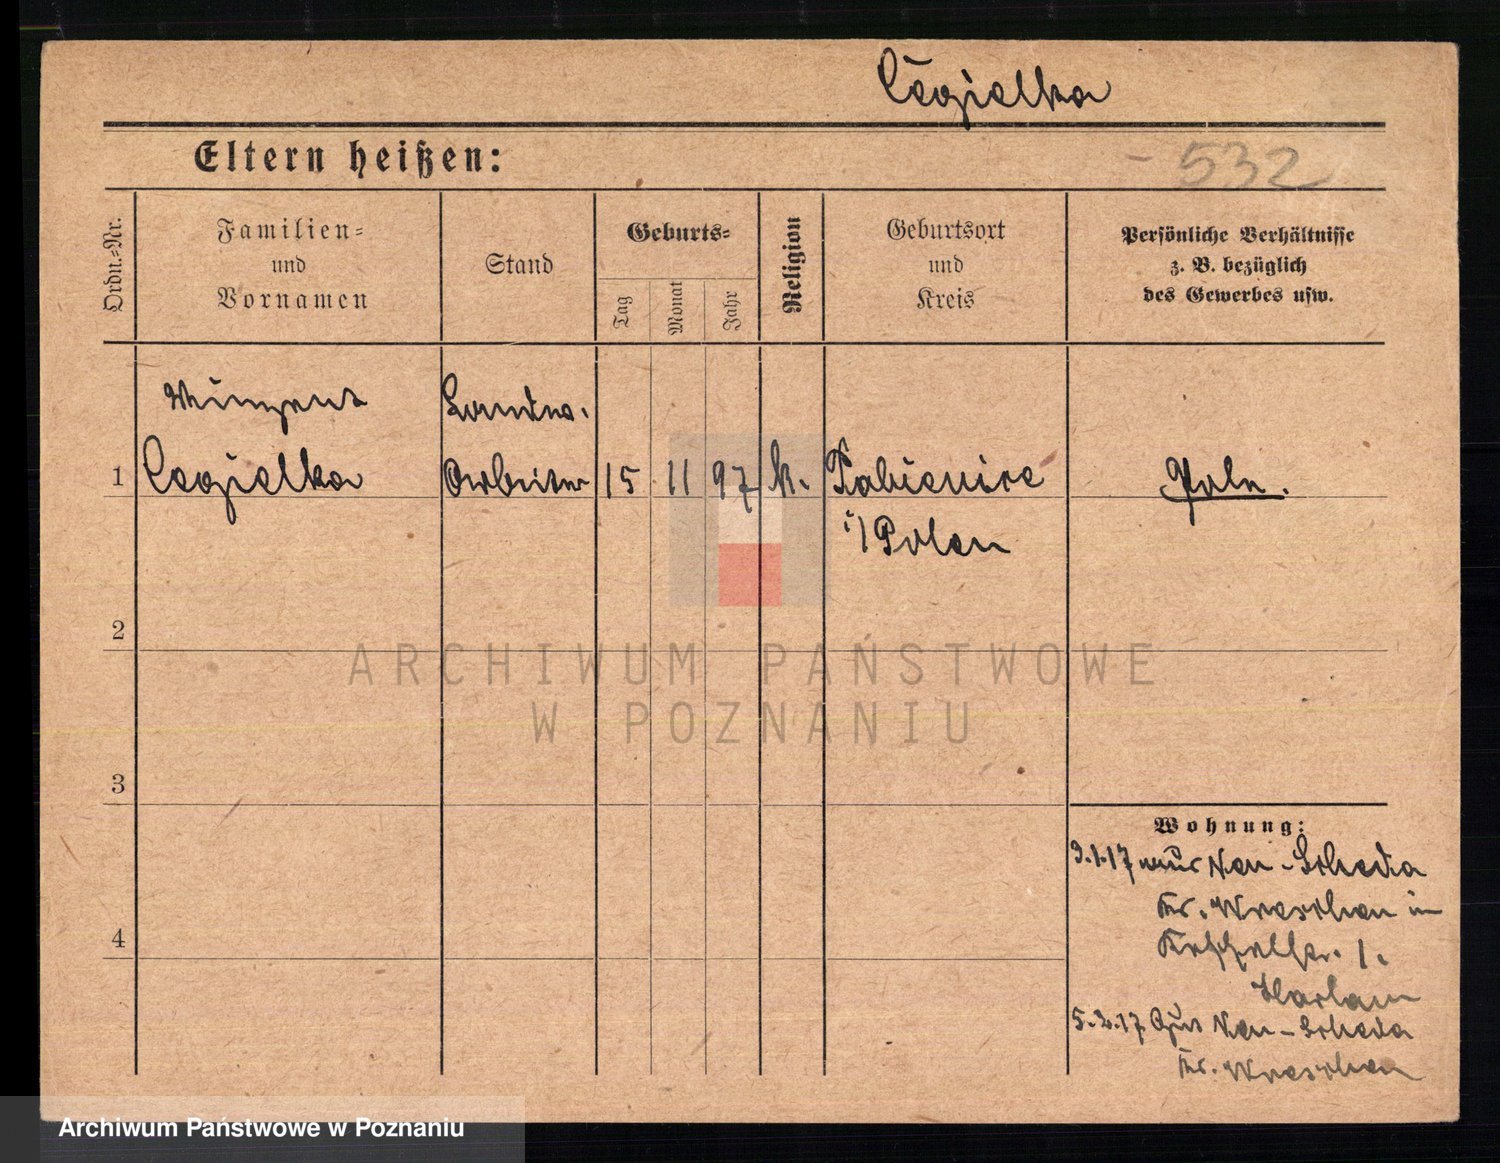 Cegielka
Eltern heißen:
- 532
Ordn.-Nr.
Familien-
und
Vornamen
Stand
Geburts-
Tag
Monat
Jahr
Religion
Geburtsort
und
Kreis
Persönliche Verhältnisse
z. B. bezüglich
des Gewerbes usw.
Winzent Landw.
1 Cegielka Arbeiter 15 11 97 k. Pabienice Pole.
i/Polen
ARCHIWUM PAŃSTWOWE
W POZNANIU
2
3
4
Wohnung:
3.1.17 aus Neu-Scheda
Kr. Wreschen in
1.
5.2.17 Gut Neu-Scheda
Kr. Wreschen
Archiwum Państwowe w Poznaniu